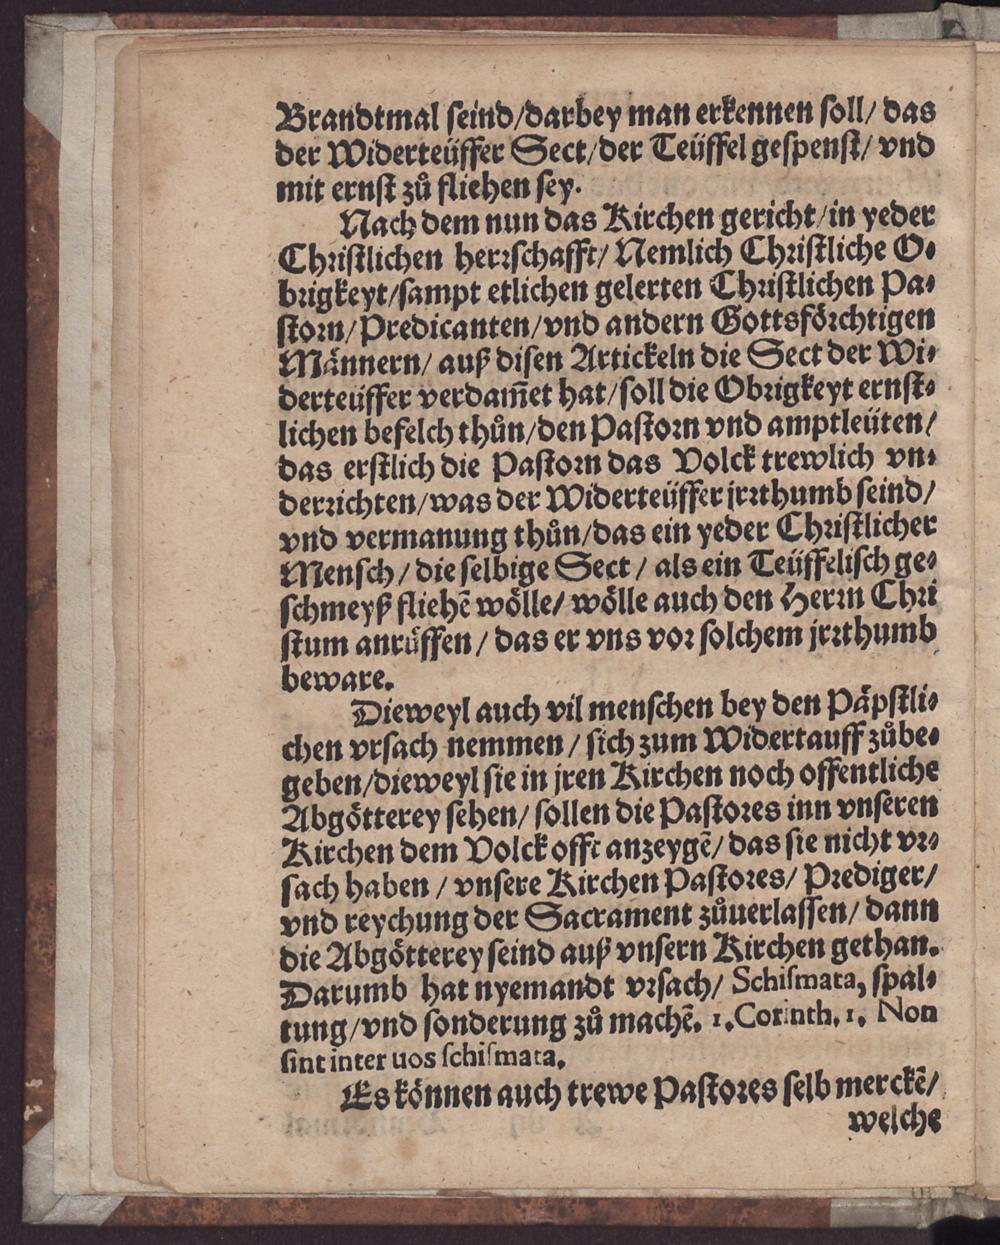 Brandtmal seind/darbey man erkennen soll/ das
der Widerteüffer Sect/der Teüffel gespenst/ vnd
mit ernst zů fliehen sey.
Nach dem nun das Kirchen gericht/in yeder
Christlichen herrschafft/ Nemlich Christliche O-
brigkeyt/sampt etlichen gelerten Christlichen Pa-
storn/Predicanten/vnd andern Gottsförchtigen
Männern/ auß disen Artickeln die Sect der Wi-
derteüffer verdam̃et hat/soll die Obrigkeyt ernst-
lichen befelch thůn/den Pastorn vnd amptleüten/
das erstlich die Pastorn das Volck trewlich vn-
derrichten/was der Widerteüffer jrrthumb seind/
vnd vermanung thůn/das ein yeder Christlicher
Mensch/ die selbige Sect/ als ein Teüffelisch ge-
schmeyß fliehẽ wölle/ wölle auch den Herrn Chri
stum anrüffen/ das er vns vor solchem jrrthumb
beware.
Dieweyl auch vil menschen bey den Päpstli-
chen vrsach nemmen/ sich zum Widertauff zůbe-
geben/dieweyl sie in jren Kirchen noch offentliche
Abgötterey sehen/ sollen die Pastores inn vnseren
Kirchen dem Volck offt anzeygẽ/ das sie nicht vr-
sach haben/ vnsere Kirchen Pastores/ Prediger/
vnd reychung der Sacrament zůuerlassen/ dann
die Abgötterey seind auß vnsern Kirchen gethan.
Darumb hat nyemandt vrsach/ Schiſmata, spal-
tung/vnd sonderung zů machẽ. 1. Corinth. 1. Non
sint inter uos schiſmata.
Es können auch trewe Pastores selb merckẽ/
welche